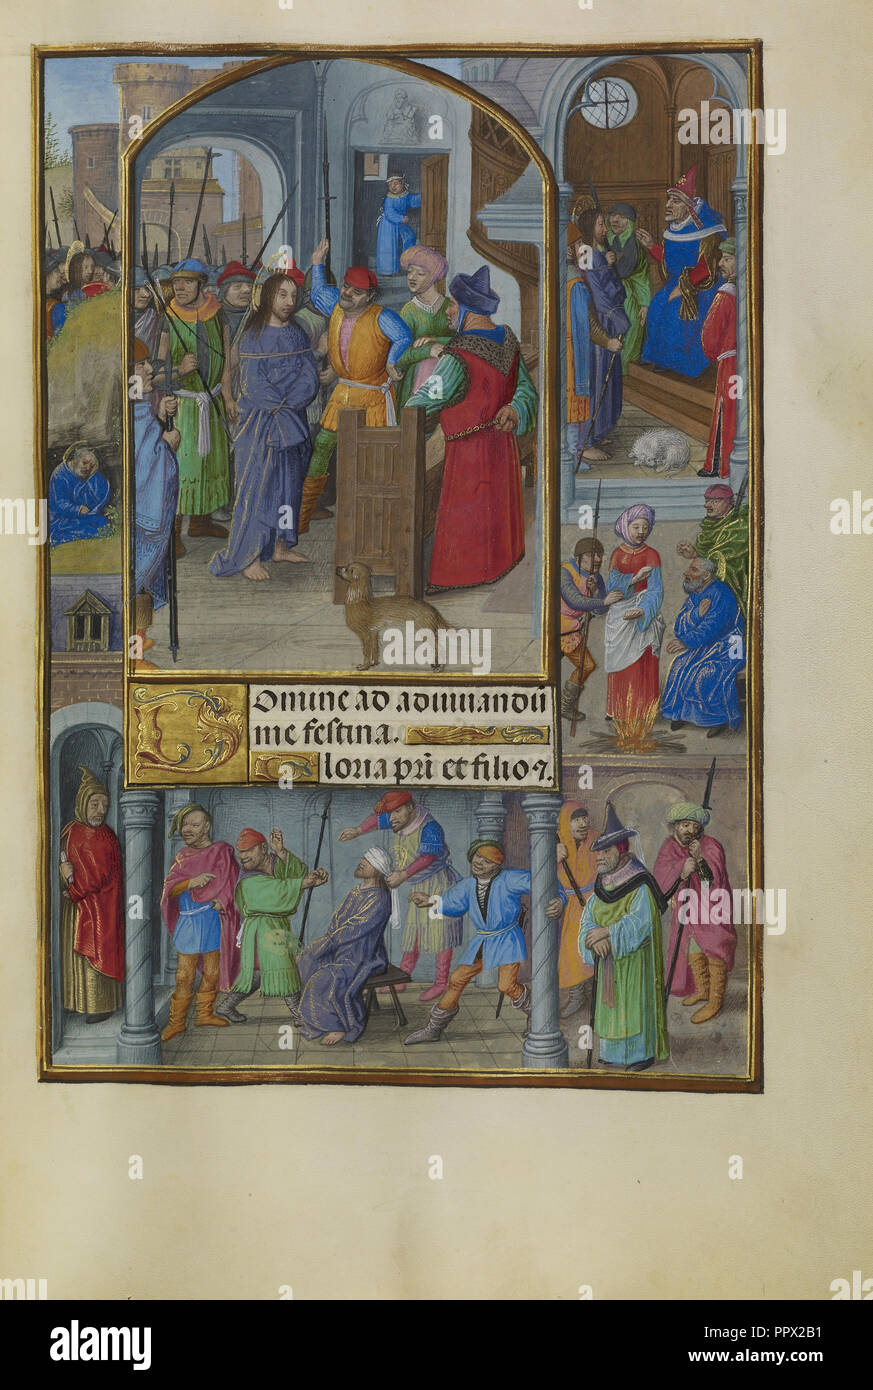 Domine ad adiuuandū
me festina.
Gloria pr̄i et filio⁊.
alamy
Image ID: PPX2B1
www.alamy.com